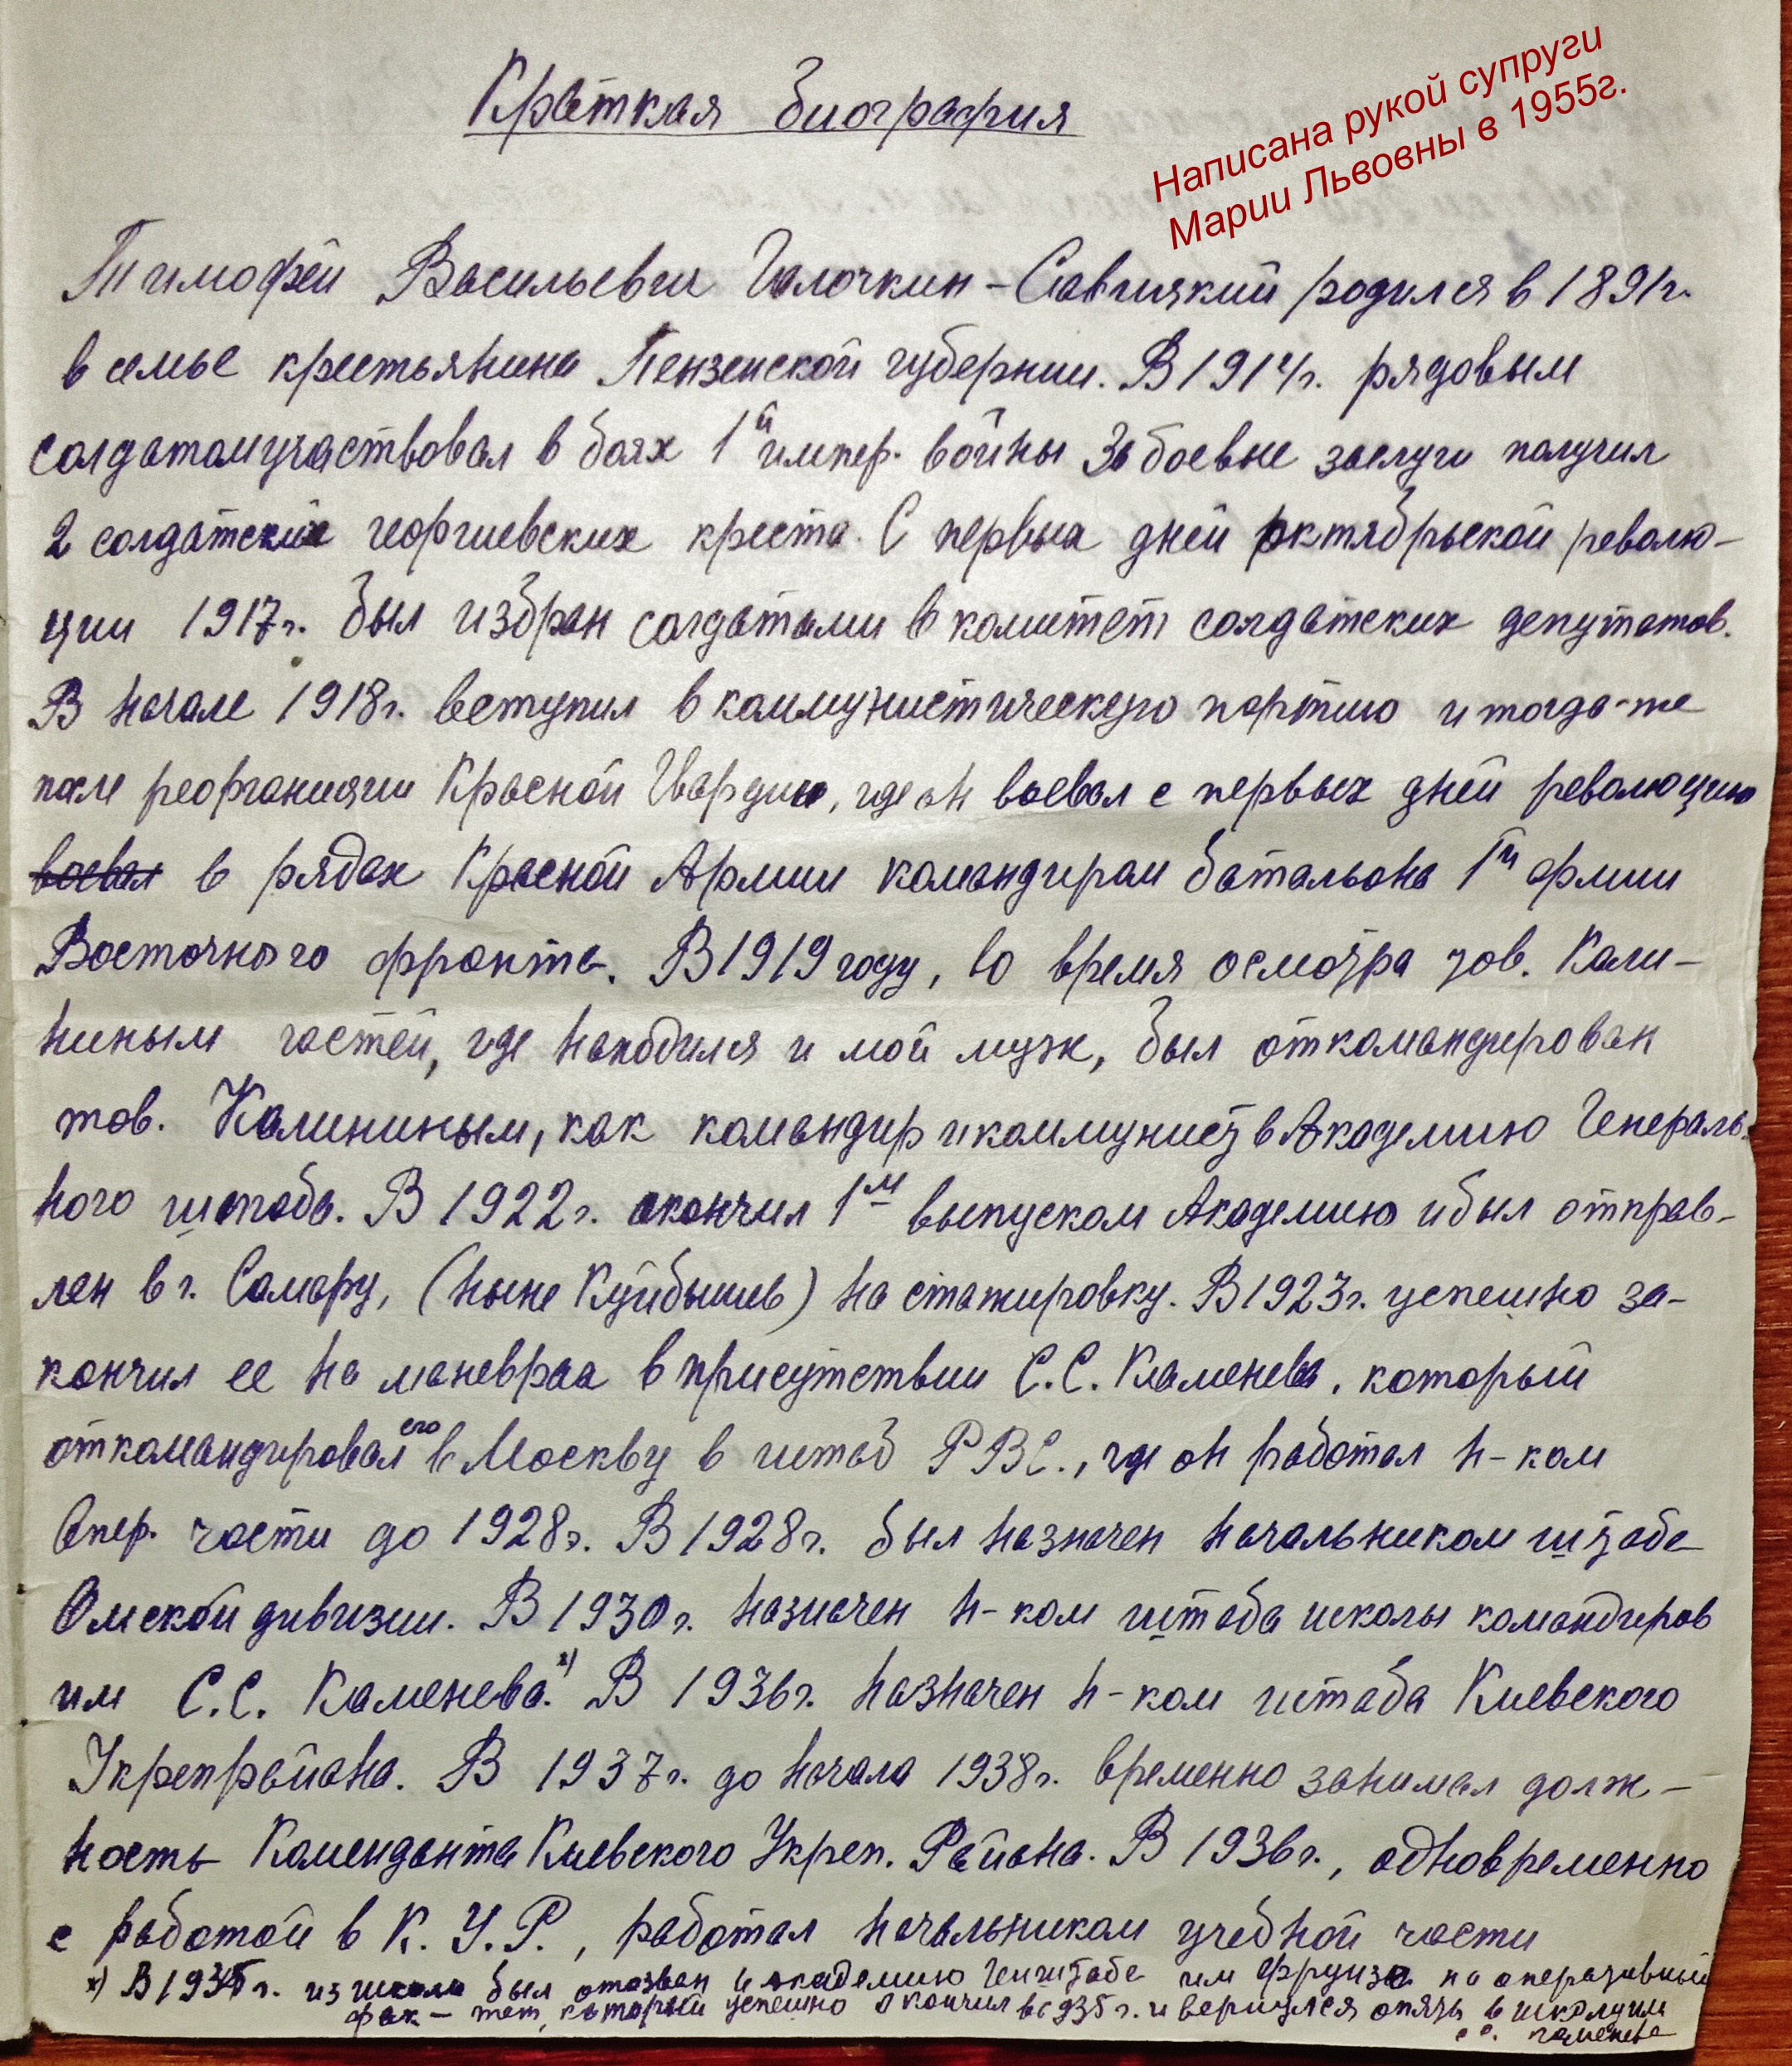 Краткая биография
Написана рукой супруги
Марии Львовны в 1955г.
Тимофей Васильевич Галочкин-Савицкий родился в 1891г.
в семье крестьянина Пензенской губернии. В 1914г. рядовым
солдатом участвовал в боях 1й импер. войны За боевые заслуги получил
2 солдатских георгиевских креста. С первых дней октябрьской револю-
ции 1917г. был избран солдатами в комитет солдатских депутатов.
В начале 1918г. вступил в коммунистическую партию и тогда-же
после реорганизации Красной Гвардии, где он воевал с первых дней революции
воевал в рядах Красной Армии командиром батальона 1й армии
Восточного фронта. В 1919 году, во время осмотра тов. Кали-
ниным частей, где находился и мой муж, был откомандирован
тов. Калининым, как командир и коммунист в Академию Генераль-
ного штаба. В 1922г. окончил 1м выпуском Академию и был отправ-
лен в г. Самару, (ныне Куйбышев) на стажировку. В 1923г. успешно за-
кончил ее на маневрах в присутствии С.С. Каменева, который
откомандировал его в Москву в штаб РВС., где он работал н-ком
Опер. части до 1928г. В 1928г. был назначен начальником штаба
Омской дивизии. В 1930г. назначен н-ком штаба школы командиров
им С.С. Каменева.х) В 1936г. назначен н-ком штаба Киевского
Укрепрайона. В 1937г. до начала 1938г. временно занимал долж-
ность Коменданта Киевского Укреп. Района. В 1936г., одновременно
с работой в К. У. Р., работал начальником учебной части
х) В 1934г. из школы был отозван в академию Генштаба им Фрунзе на оперативный
фак-тет, который успешно окончил в 1935г. и вернулся опять в школу им
С.С. Каменева